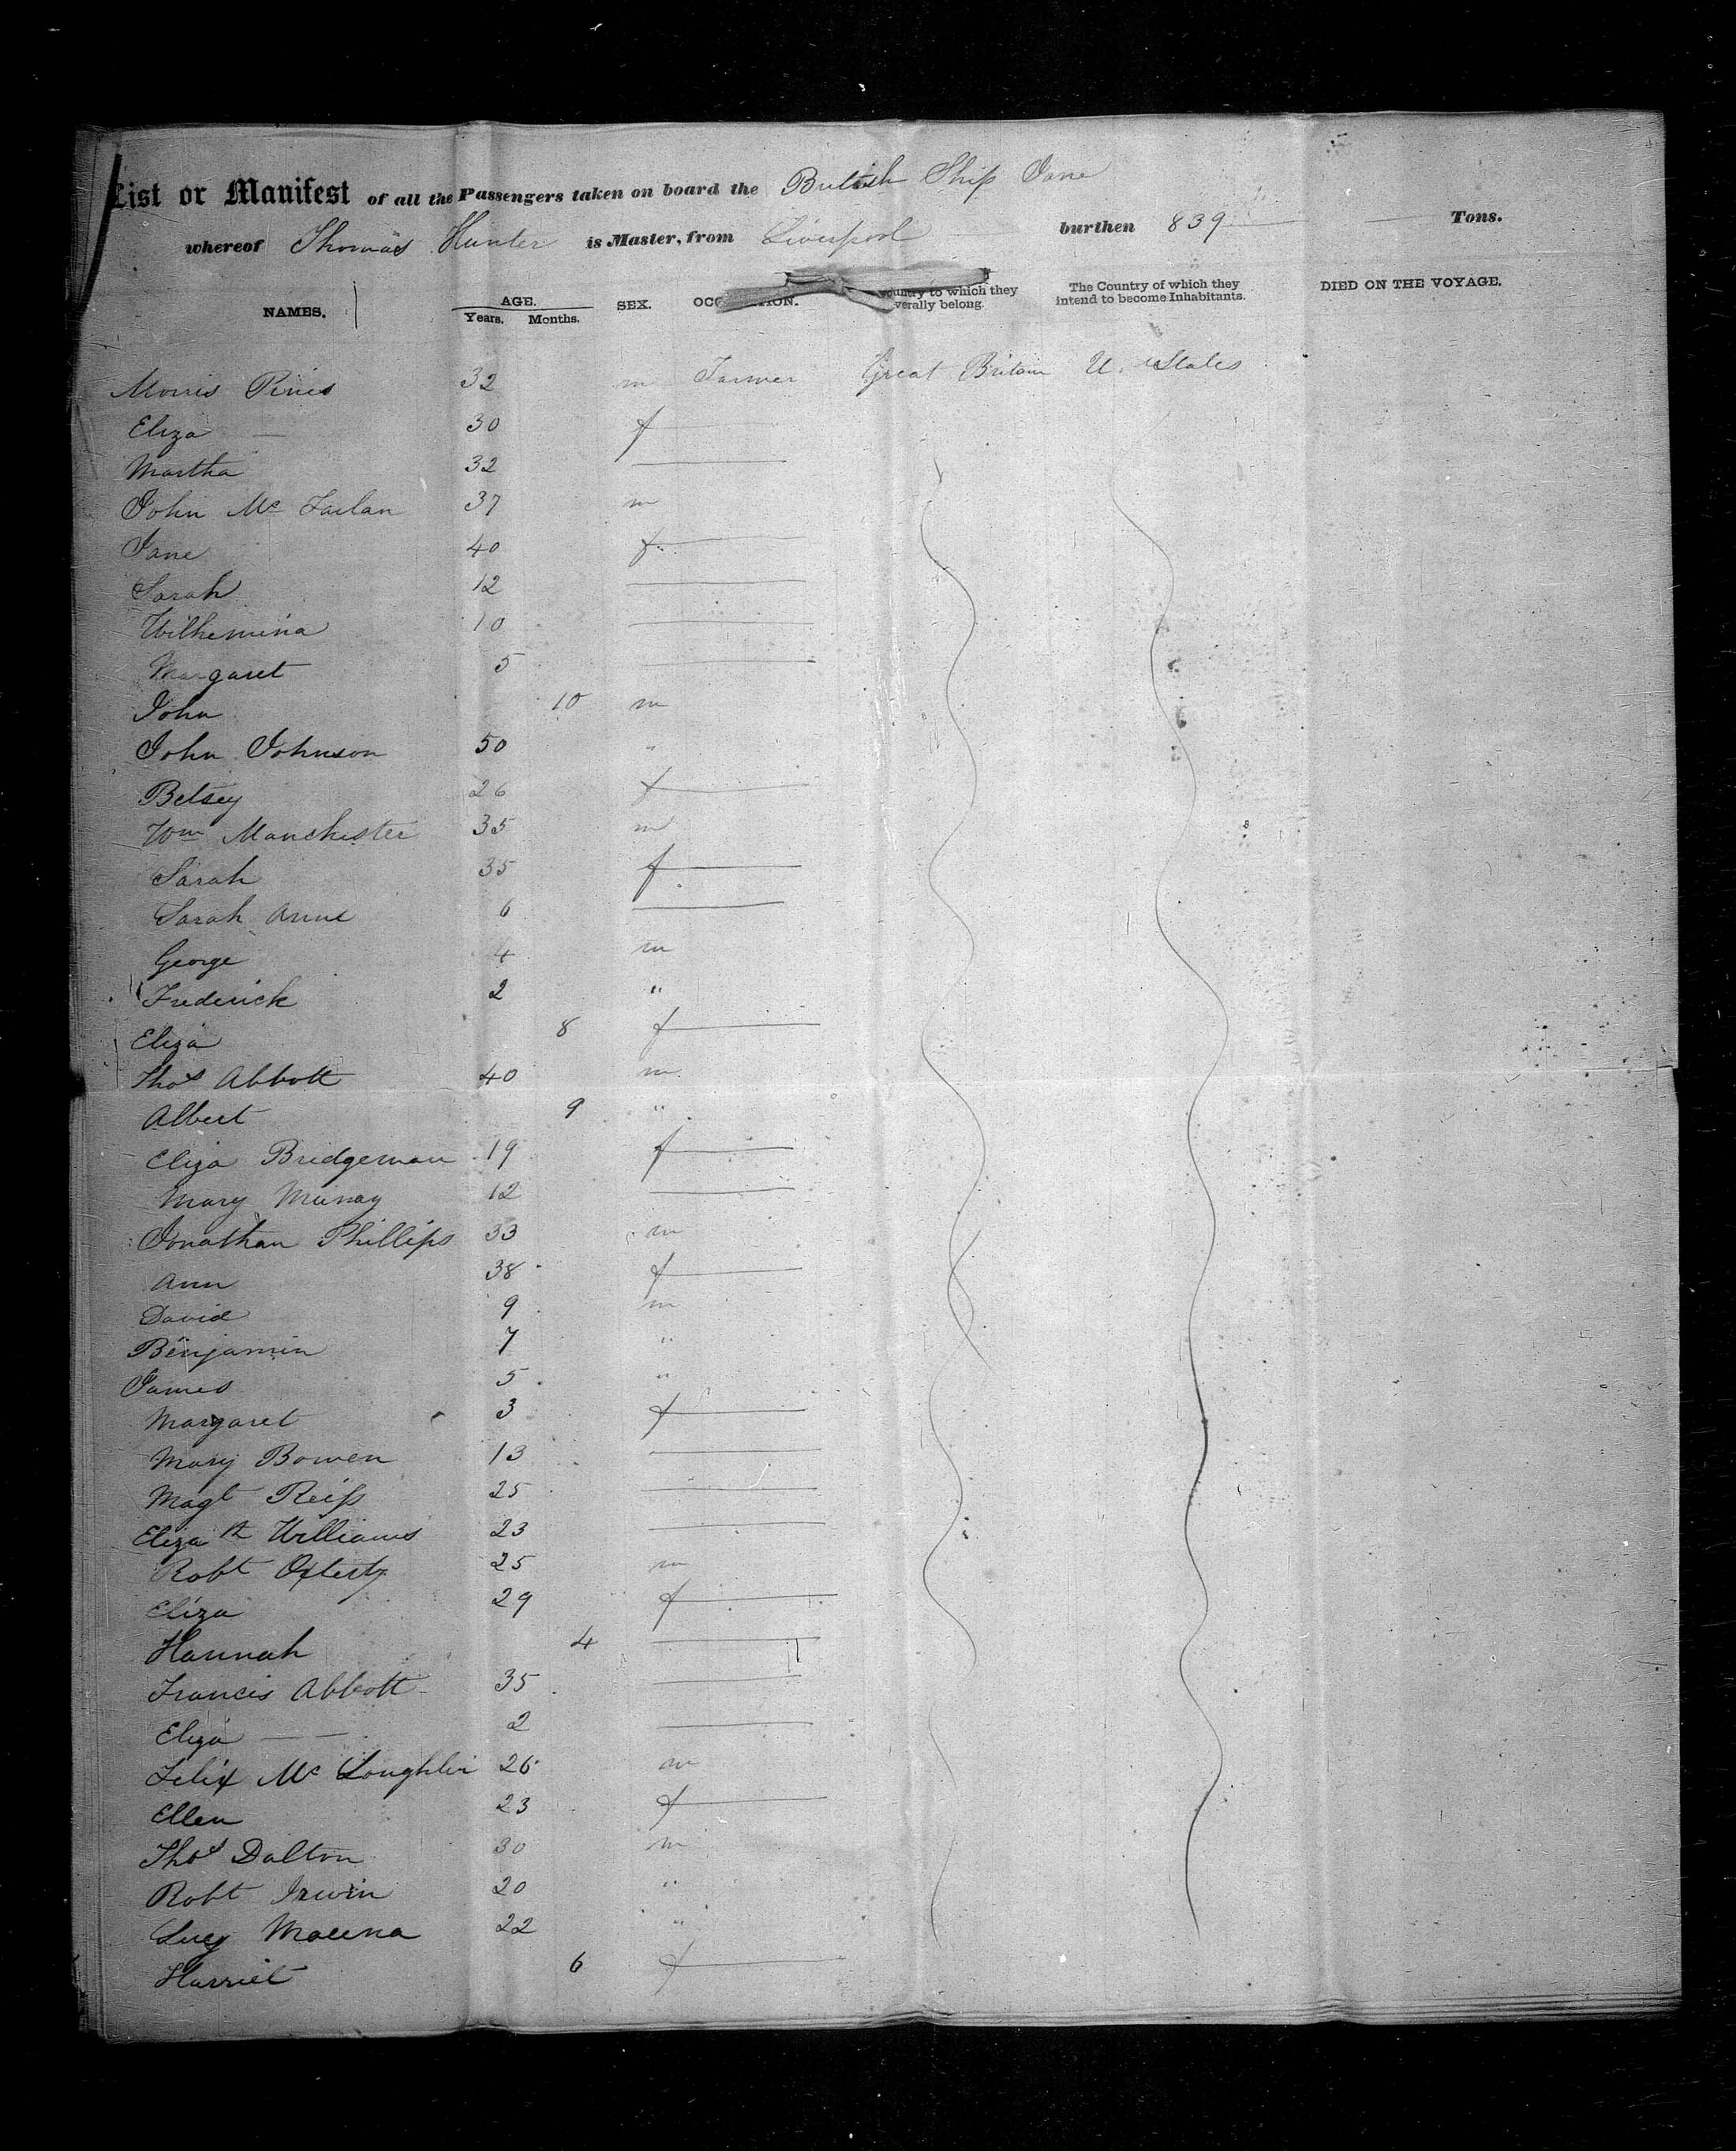 List or Manifest of all the Passengers taken on board the British Ship Jane
whereof Thomas Hunter is Master, from Liverpool burthen 839 Tons.
NAMES. AGE. Years. Months. SEX. OCCUPATION. Country to which they severally belong. The Country of which they intend to become Inhabitants. DIED ON THE VOYAGE.
Morris 32 m Farmer Great Britain U. States
Eliza — 30 f
Martha 32
John Mc 37 m
Jane 40 f
Sarah 12
Wilhemina 10
Margaret 5
John 10 m
John Johnson 50 "
Betsey 26 f
Wm Manchester 35 m
Sarah 35 f
Sarah Anne 6
George 4 m
Frederick 2 "
Eliza 8 f
Thos Abbott 40 m
Albert 9 "
Eliza Bridgeman 19 f
Mary Murray 12
Jonathan Phillips 33 m
Ann 38 f
David 9 m
Benjamin 7 "
James 5 "
Margaret 3 f
Mary Bowen 13
Magt 25
Elizath Williams 23
Robt 25 m
Eliza 29 f
Hannah 4
Francis Abbott 35
Eliza — 2
Felix Mc Loughlin 26 m
Ellen 23 f
Thos Dalton 30 m
Robt Irwin 20 "
Lucy 22 "
Harriet 6 f